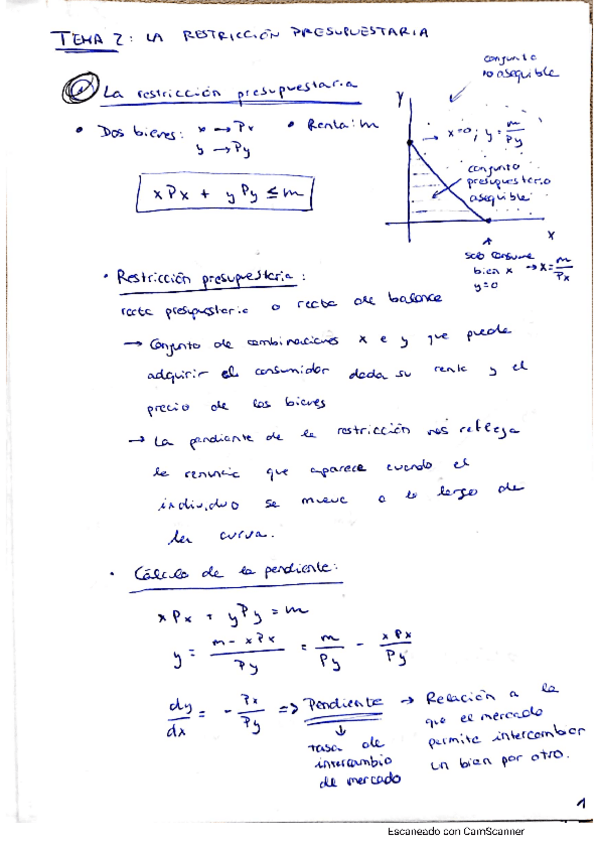 TEMA 2: LA RESTRICCIÓN PRESUPUESTARIA
La restricción presupuestaria
• Dos bienes: x → Px
y → Py
• Renta: m
xPx + yPy ≤ m
conjunto
no asequible
y
→ x=0; y = m/Py
conjunto
presupuestario
asequible
x
solo consume
bien x → x = m/Px
y=0
• Restricción presupuestaria:
recta presupuestaria o recta de balance
→ Conjunto de combinaciones x e y que puede
adquirir el consumidor dada su renta y el
precio de los bienes
→ La pendiente de la restricción nos refleja
la renuncia que aparece cuando el
individuo se mueve a lo largo de
la curva.
• Cálculo de la pendiente:
xPx + yPy = m
y = (m - xPx)/Py = m/Py - xPx/Py
dy/dx = - Px/Py => Pendiente → Relación a la
que el mercado
permite intercambiar
un bien por otro.
↓
tasa de
intercambio
de mercado
1
Escaneado con CamScanner